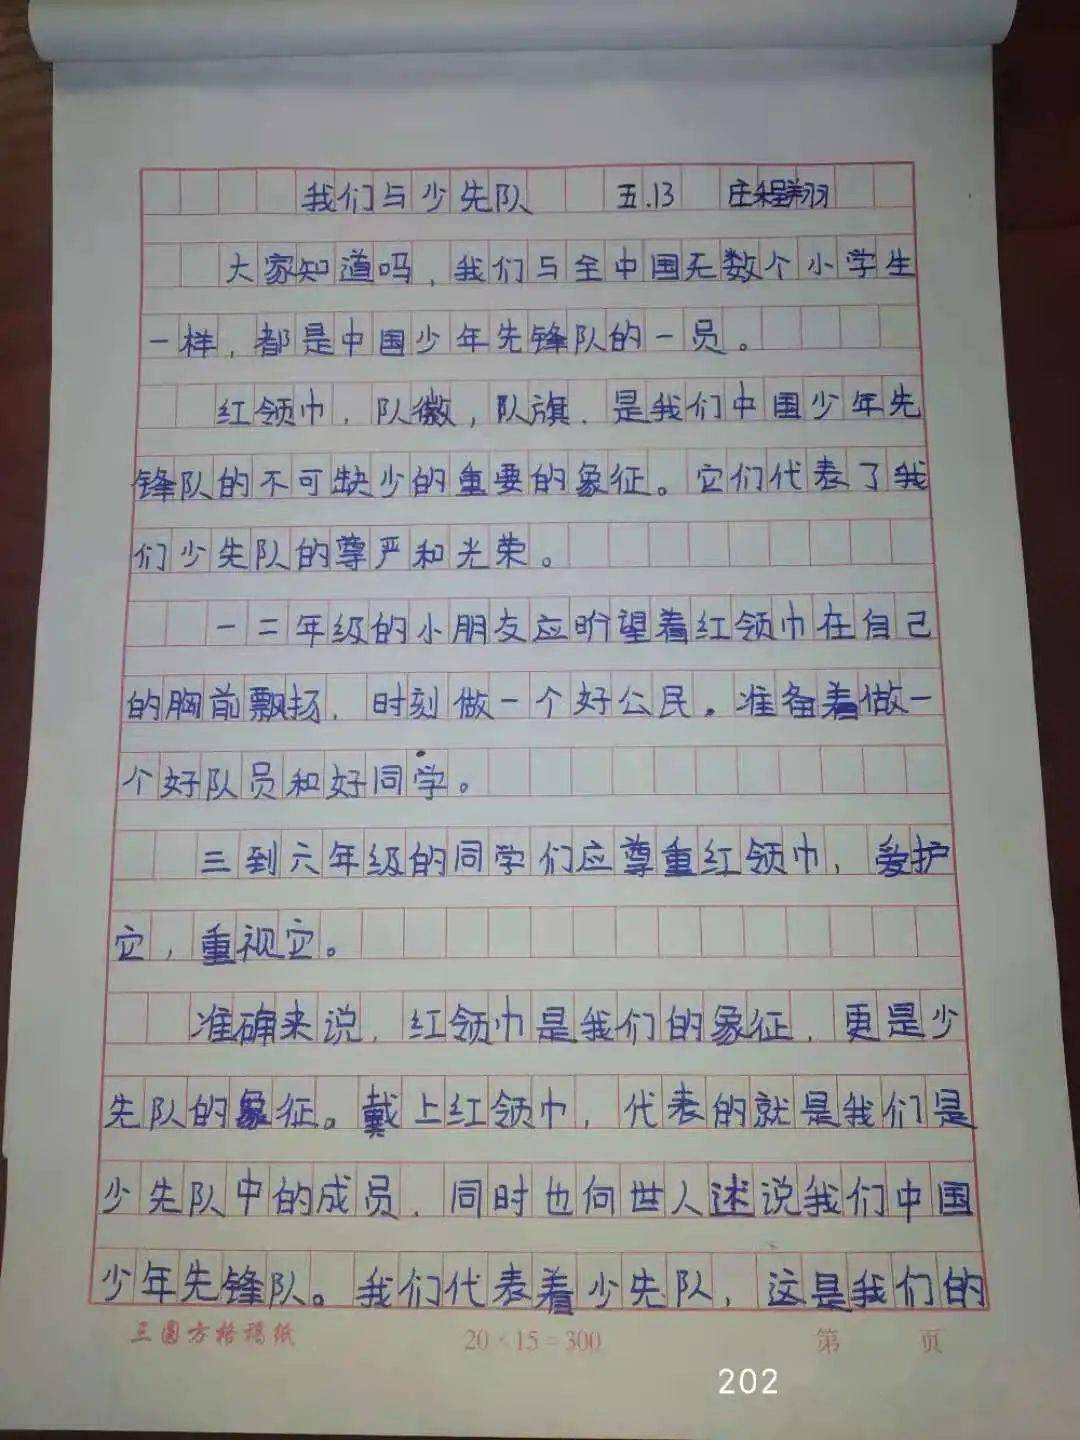 我们与少先队 五.13 庄程翔羽
大家知道吗，我们与全中国无数个小学生
一样，都是中国少年先锋队的一员。
红领巾，队徽，队旗，是我们中国少年先
锋队的不可缺少的重要的象征。它们代表了我
们少先队的尊严和光荣。
一二年级的小朋友应盼望着红领巾在自己
的胸前飘扬，时刻做一个好公民。准备着做一
个好队员和好同学。
三到六年级的同学们应尊重红领巾，爱护
它，重视它。
准确来说，红领巾是我们的象征，更是少
先队的象征。戴上红领巾，代表的就是我们是
少先队中的成员，同时也向世人述说我们中国
少年先锋队。我们代表着少先队，这是我们的
三圆方格稿纸 20×15=300 第 页
202